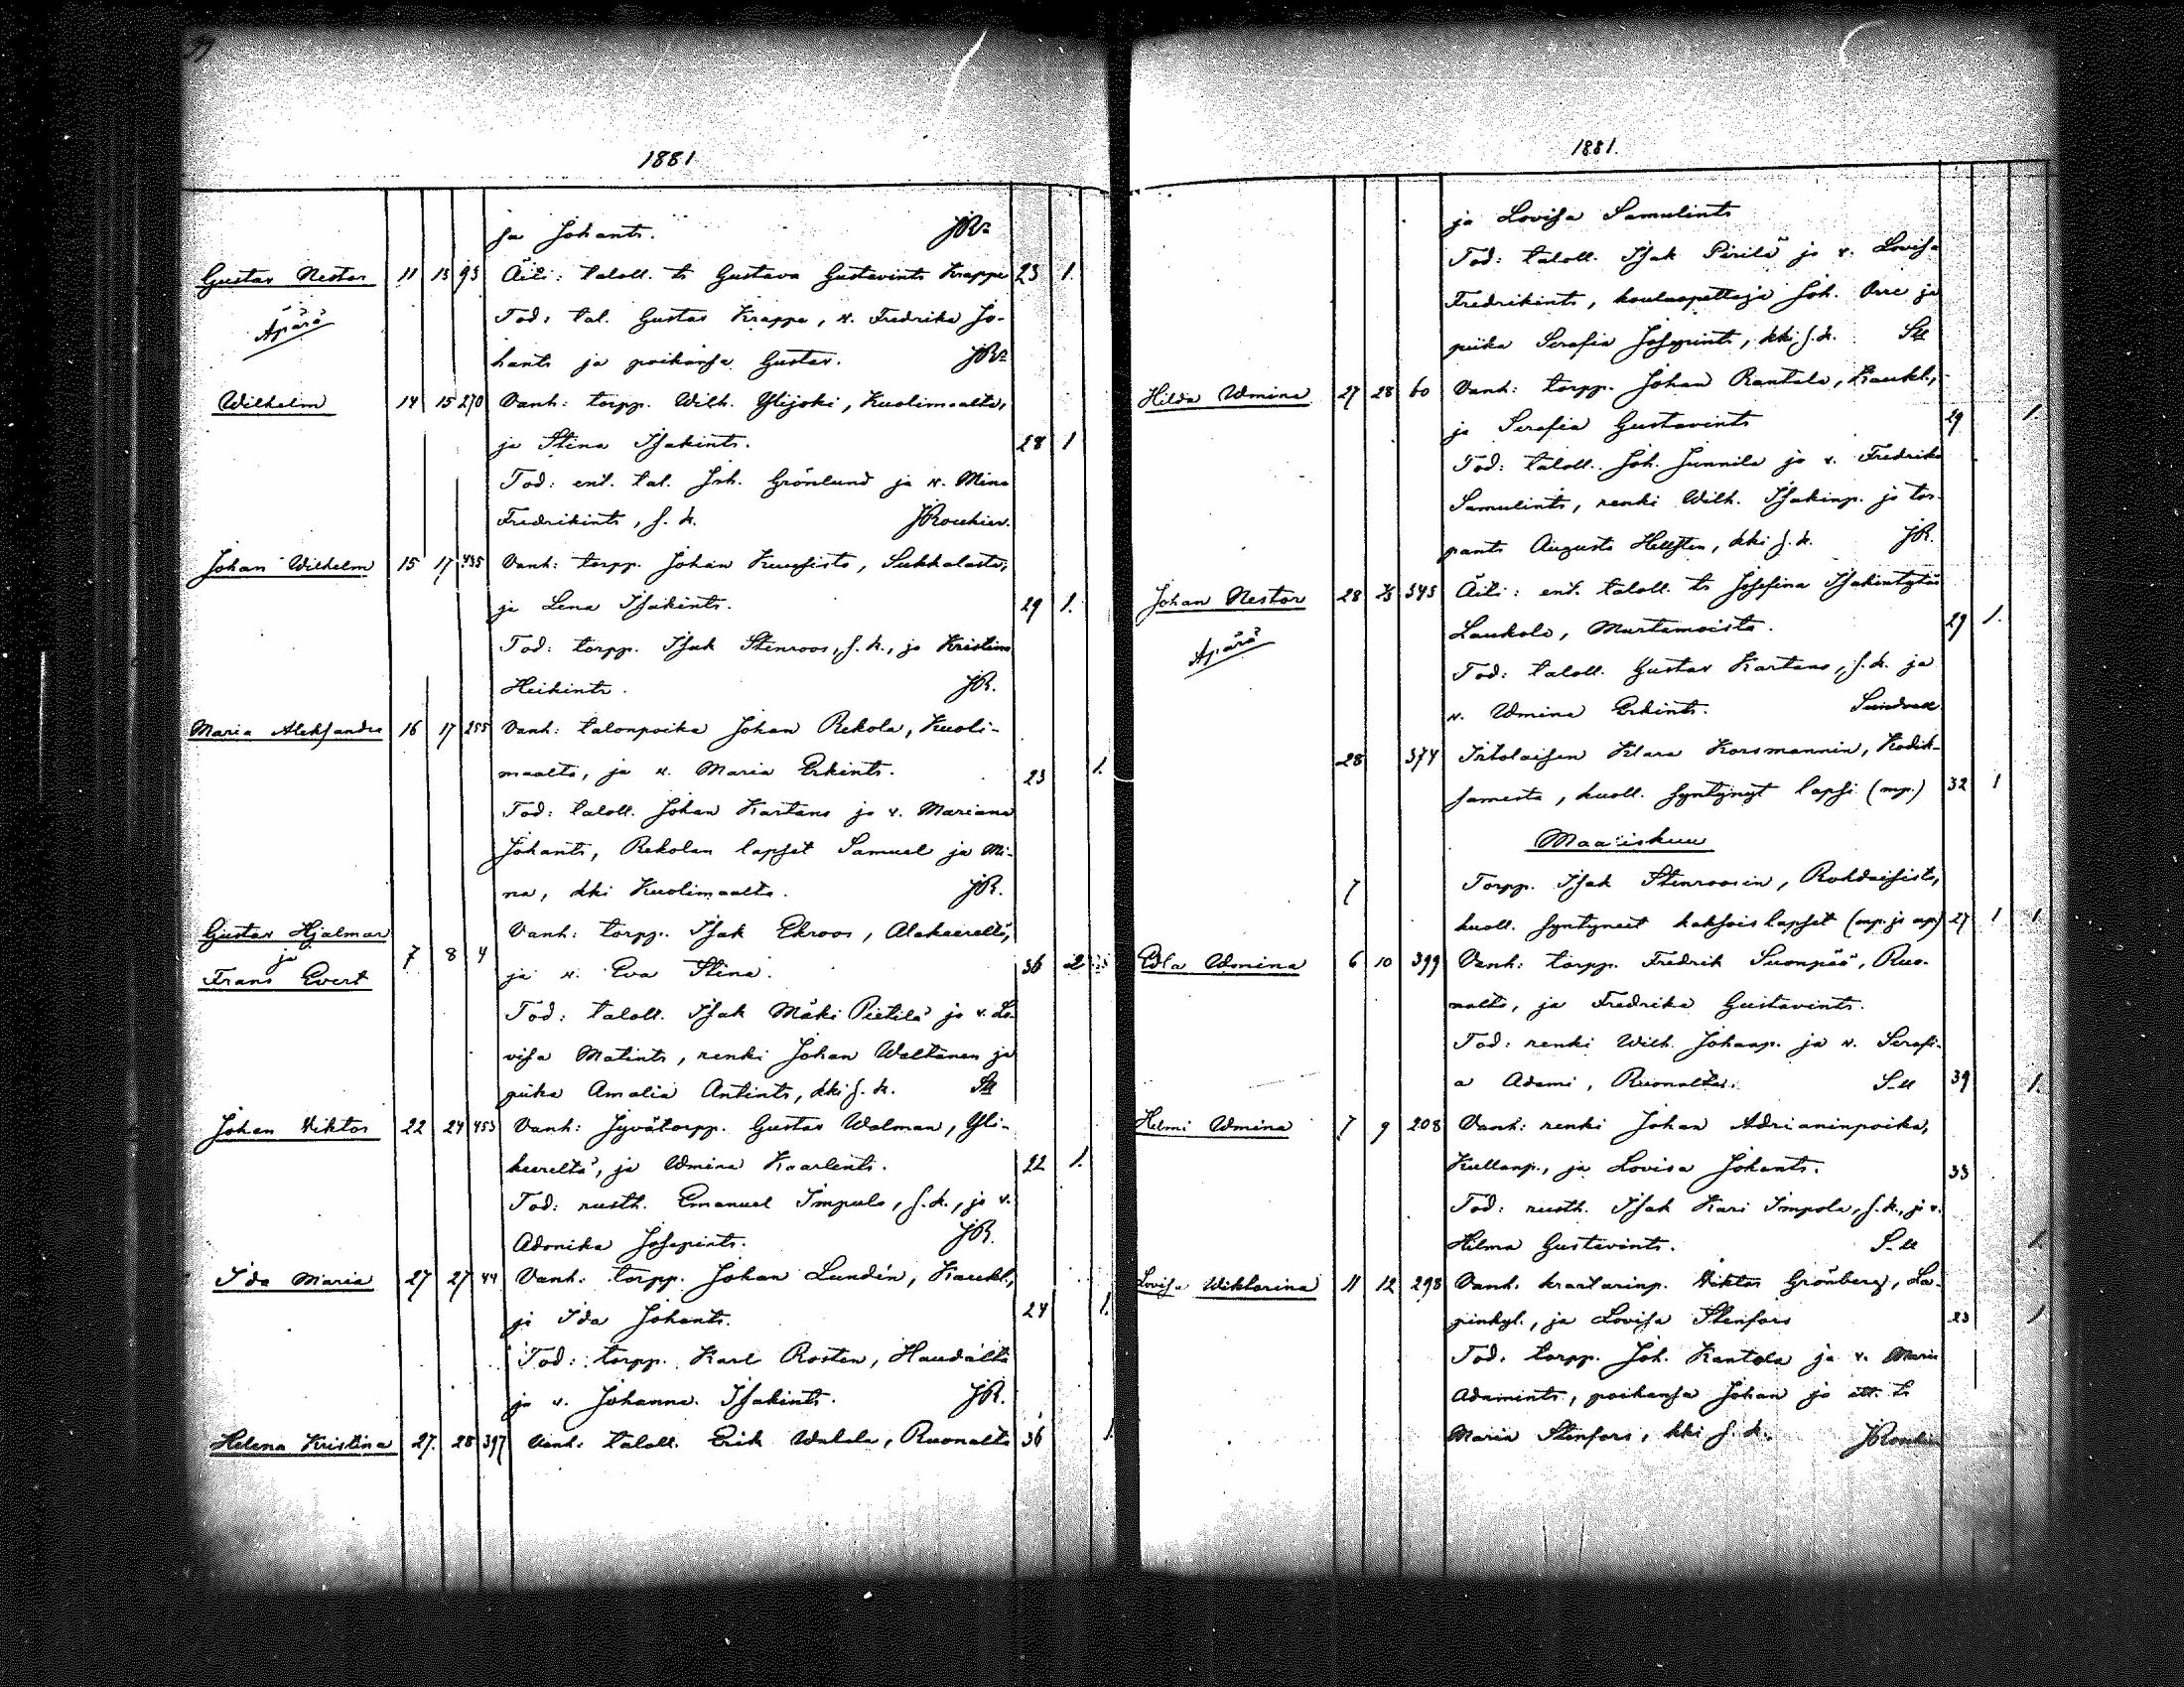 1881
ja Johants. JR
Gustav Nestor 11 13 93 Äiti: taloll. ts Gustava Gustavints Krappe 23 1.
Äpärä Tod: tal. Gustav Krappe, v. Fredrika Jo-
hants ja poikansa Gustav. JR
Wilhelm 14 15 270 Vanh: torpp. Wilh. Ylijoki, Kuolimaalta,
ja Stina Isakints. 28 1
Tod: ent. tal. Joh. Grönlund ja v. Mina
Fredrikints, s. k.
Johan Wilhelm 15 17 435 Vanh: torpp. Johan Kuusisto, Sukkalasta,
ja Lena Isakints. 29 1.
Tod: torpp. Isak Stenroos, s. k., ja Kristina
Heikints. JR.
Maria Aleksandra 16 17 255 Vanh: talonpoika Johan Rekola, Kuoli-
maalta, ja v. Maria Erkints. 23 1.
Tod: taloll. Johan Kartano ja v. Mariana
Johants, Rekolan lapset Samuel ja Mi-
na, kki Kuolimaalta. JR.
Gustav Hjalmar Vanh: torpp. Isak Ekroos, Alakeereltä,
ja 7 8 4
Frans Evert ja v. Eva Stina. 36 2
Tod: taloll. Isak Mäki Pietilä ja v. Lo-
visa Matints, renki Johan Waltanen ja
piika Amalia Antints, kki s. k.
Johan Viktor 22 24 453 Vanh: Jyvätorpp. Gustav Walman, Yli-
keereltä, ja Wmina Kaarlints. 22 1.
Tod: rusth. Emanuel Impola, s. k., ja v.
Adonika Josepints. JR.
Ida Maria 27 27 44 Vanh: torpp. Johan Lundén, Kaukl.,
ja Ida Johants. 24 1.
Tod: torpp. Karl Rosten, Haudalta
ja v. Johanna Isakints. JR.
Helena Kristina 27. 28 397 Vanh: taloll. Erik Walala, Ruonalta 36 1
1881.
ja Lovisa Samulints
Tod: taloll. Isak Pirilä ja v. Lovisa
Fredrikints, kouluopettaja Joh. Orre ja
piika Serafia Josepints, kki s. k.
Hilda Wmina 27 28 60 Vanh: torpp. Johan Rantala, Kaukl.,
ja Serafia Gustavints 29 1.
Tod: taloll. Joh. Junnila ja v. Fredrika
Samulints, renki Wilh. Isakinp. ja tor-
pants Augusta Hellsten, kki s. k. JR.
Johan Nestor 28 545 Äiti: ent. taloll. ts Josefina Isakintytär
Laukola, Murtamoista. 29 1.
Äpärä Tod: taloll. Gustav Kartano, s. k. ja
v. Wmina Erkints. Sundvall
28 374 Irtolaisen Klara Korsmannin, Kodik-
samesta, kuoll. syntynyt lapsi (mp.) 32 1
Maaliskuu
7 Torpp. Isak Stenroosin, Rohdaisista,
kuoll. syntyneet kaksoislapset (mp. ja np) 27 1 1
Edla Wmina 6 10 399 Vanh: torpp. Fredrik Suonpää, Ruo-
nalta, ja Fredrika Gustavints.
Tod: renki Wilh. Johanp. ja v. Serafi-
a Adami, Ruonalta. S-ll 39 1.
Helmi Wmina 7 9 208 Vanh: renki Johan Adrianinpoika,
Kullanp., ja Lovisa Johants. 33
Tod: rusth. Isak Kari Impola, s. k., ja v.
Hilma Gustavints. S-ll 1
Lovisa Wiktorina 11 12 298 Vanh. kraatarinp. Viktor Grönberg, La-
pinkyl., ja Lovisa Stenfors 23 1
Tod. torpp. Joh. Kantola ja v. Maria
Adamints, poikansa Johan ja ts
Maria Stenfors, kki s. k.